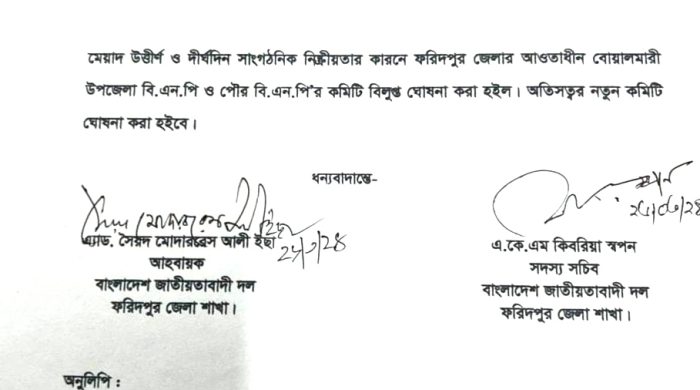 মেয়াদ উত্তীর্ণ ও দীর্ঘদিন সাংগঠনিক নিষ্ক্রীয়তার কারনে ফরিদপুর জেলার আওতাধীন বোয়ালমারী
উপজেলা বি.এন.পি ও পৌর বি.এন.পি'র কমিটি বিলুপ্ত ঘোষনা করা হইল। অতিসত্বর নতুন কমিটি
ঘোষনা করা হইবে।
ধন্যবাদান্তে-
এ্যাড. সৈয়দ মোদাররেস আলী ইছা
আহবায়ক
বাংলাদেশ জাতীয়তাবাদী দল
ফরিদপুর জেলা শাখা।
এ.কে.এম কিবরিয়া স্বপন
সদস্য সচিব
বাংলাদেশ জাতীয়তাবাদী দল
ফরিদপুর জেলা শাখা।
অনুলিপি :